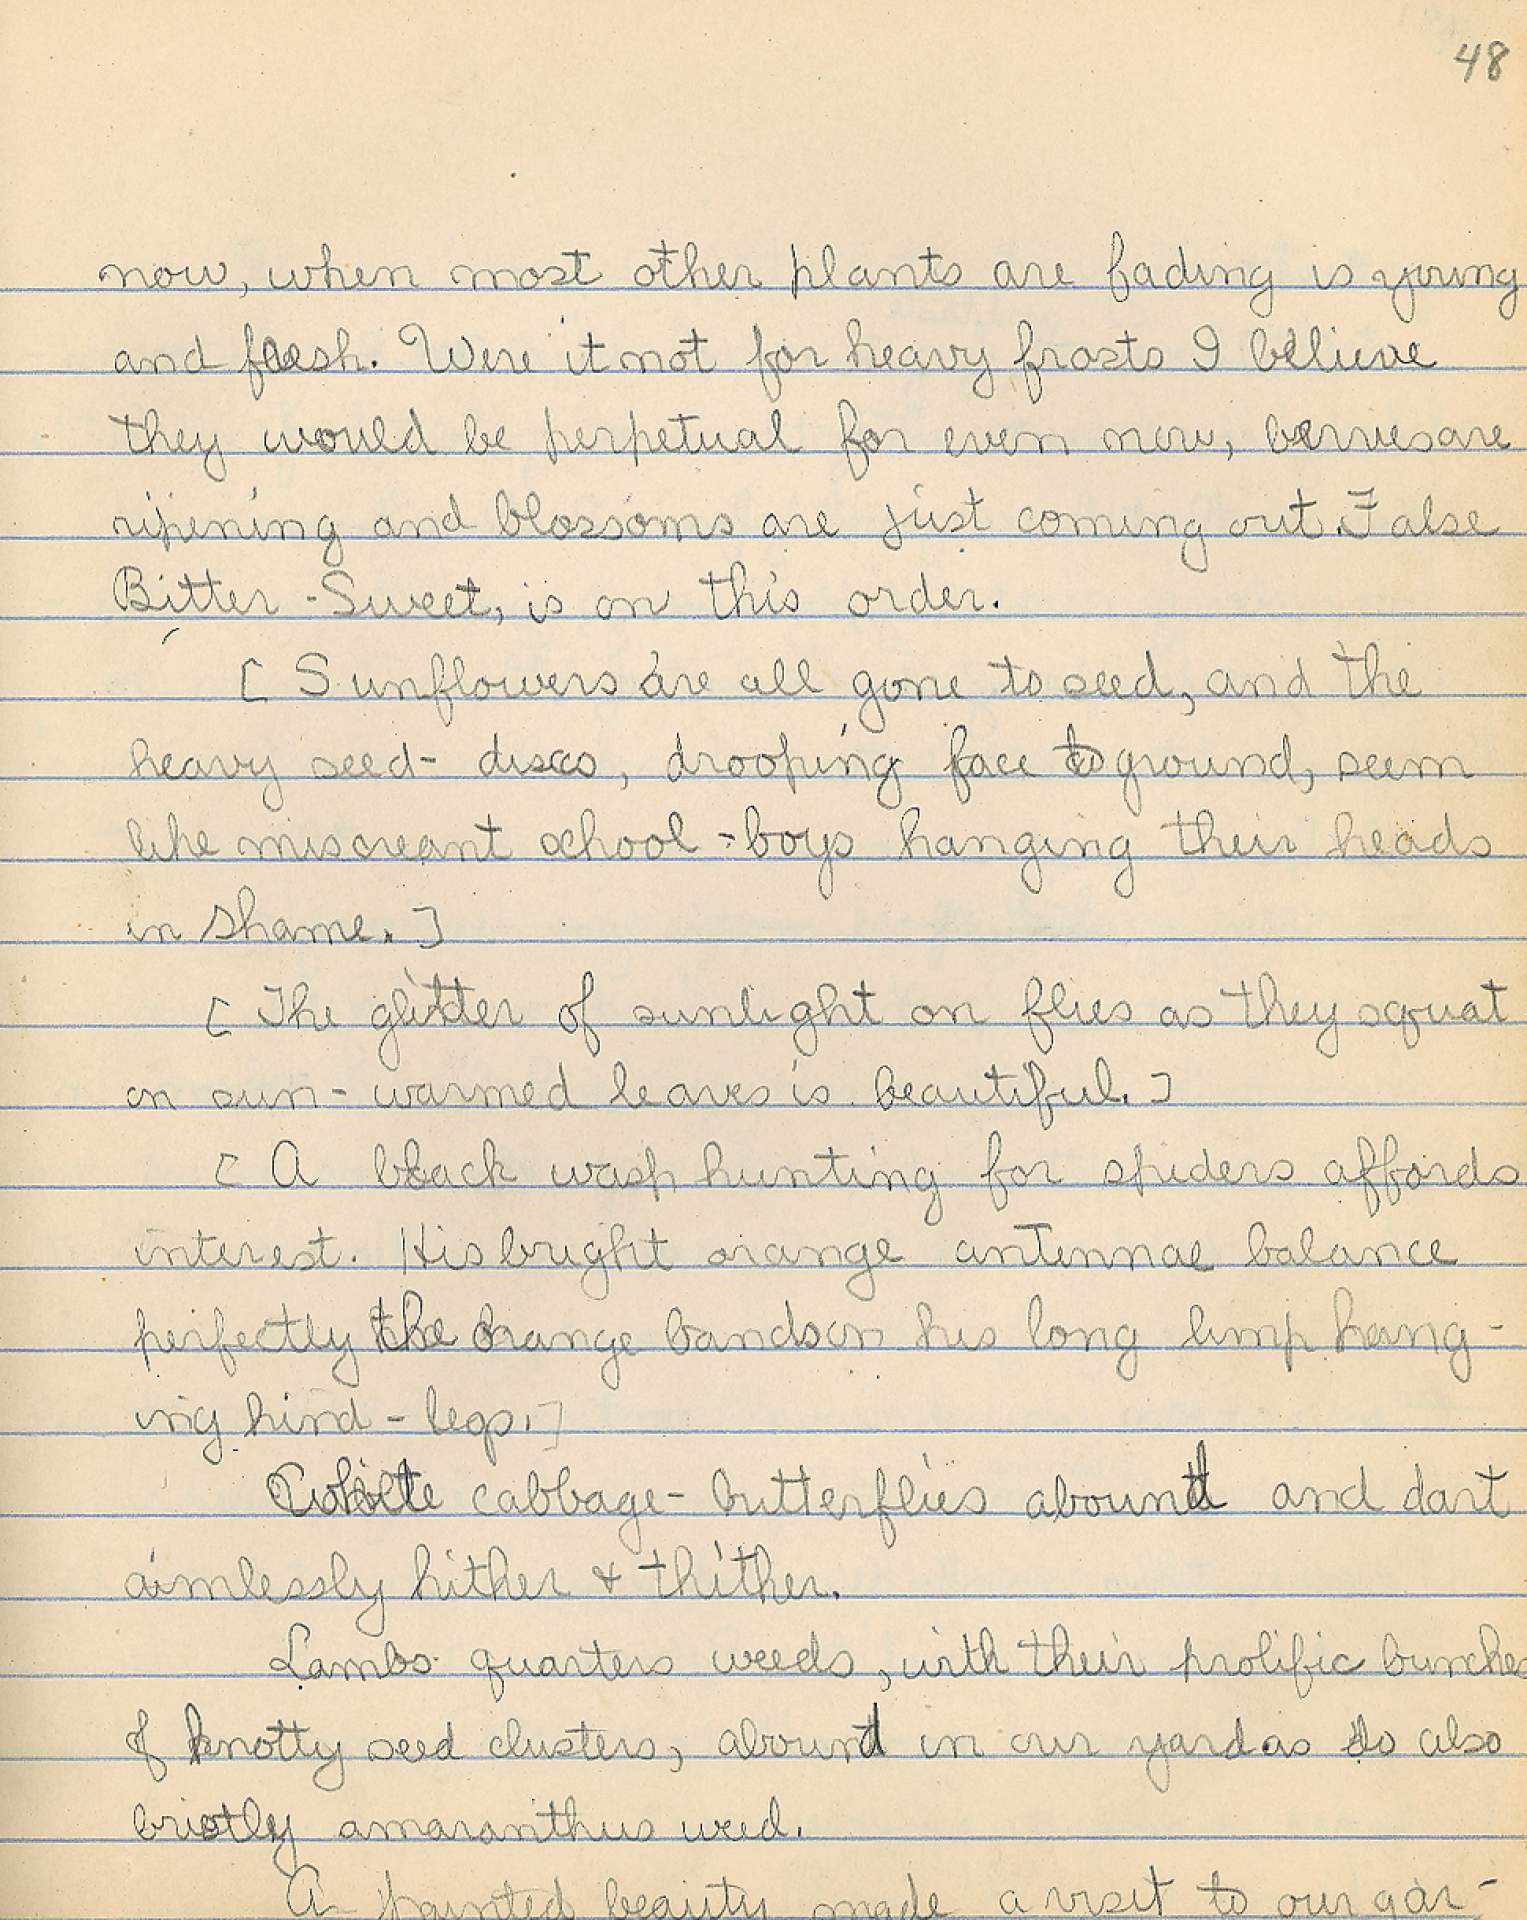 48
now, when most other plants are fading is young
and fresh. Were it not for heavy frosts I believe
they would be perpetual for even now, berries are
ripening and blossoms are just coming out. False
Bitter-Sweet, is on this order.
[ Sunflowers are all gone to seed, and the
heavy seed-discs, drooping face to ground, seem
like miscreant school-boys hanging their heads
in shame. ]
[ The glitter of sunlight on flies as they squat
on sun-warmed leaves is beautiful. ]
[ A black wasp hunting for spiders affords
interest. His bright orange antennae balance
perfectly the orange bands on his long limp hang-
ing hind-legs. ]
White cabbage-butterflies abound and dart
aimlessly hither & thither.
Lambs quarters weeds, with their prolific bunches
of knotty seed clusters, abound in our yard as do also
bristly amaranthus weed.
A painted beauty made a visit to our gar-